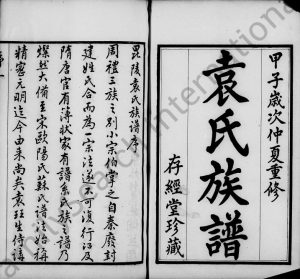 甲子歲次仲夏重修
袁氏族譜
存經堂珍藏
毘陵袁氏族譜序
周禮三族之別小宗伯掌之自秦廢封
建姓氏合而為一宗法遂不可復行江左
隋唐官有簿狀家有譜系氏族之譜乃
燦然大備至宋歐陽氏蘇氏譜法始稱
精密元明迄今由来尚矣袁珏生侍講